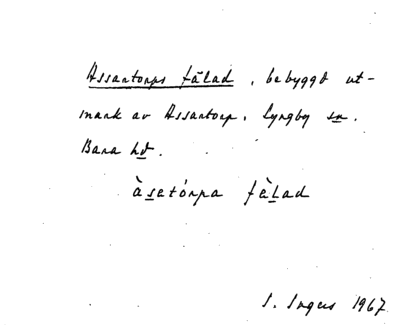 Assartorps fälad, bebyggd ut-
mark av Assartorp, Lyngby sn.
Bara hd.
àsetórpa fä̀lad
I. Ingers 1967